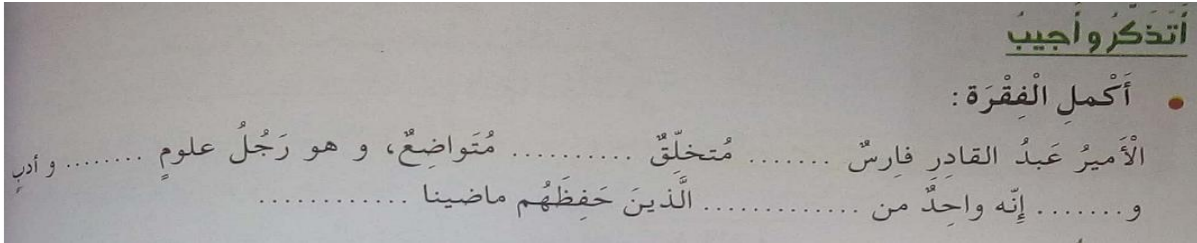 أَتَذَكَّرُ و أُجيبُ
• أَكْملِ الْفِقْرَة :
الْأَميرُ عَبدُ القادِرِ فارِسٌ ....... مُتخلِّقٌ .......... مُتَواضِعٌ، و هو رَجُلُ علومٍ ........ و أدبٍ
و ....... إِنّه واحِدٌ من ............. الَّذينَ حَفِظَهُم ماضينا ............